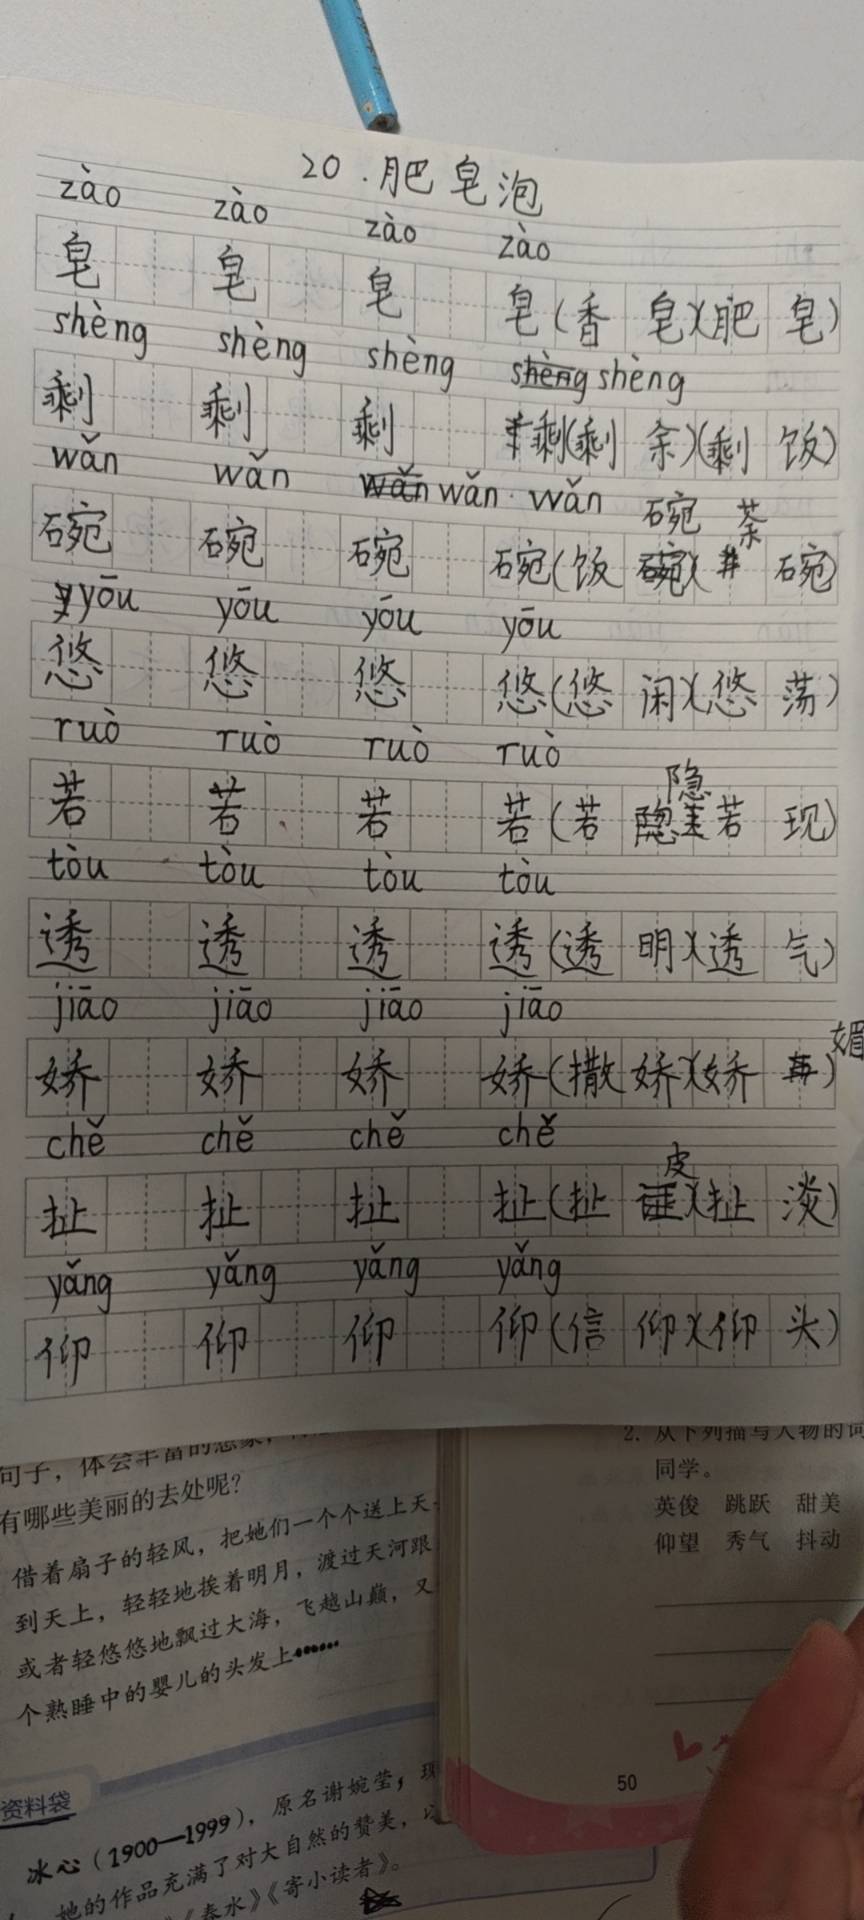 20.肥皂泡
zào zào zào zào
皂 皂 皂 皂(香皂)(肥皂)
shèng shèng shèng shèng shèng
剩 剩 剩 剩(剩余)(剩饭)
wǎn wǎn wǎn wǎn wǎn
碗 茶
碗 碗 碗 碗(饭碗)(碗)
yōu yōu yōu yōu
悠 悠 悠 悠(悠闲)(悠荡)
ruò ruò ruò ruò
隐
若 若 若 若(若隐若现)
tòu tòu tòu tòu
透 透 透 透(透明)(透气)
jiāo jiāo jiāo jiāo
娇 娇 娇 娇(撒娇)(娇)媚
chě chě chě chě
皮
扯 扯 扯 扯(扯)(扯淡)
yǎng yǎng yǎng yǎng
仰 仰 仰 仰(信仰)(仰头)
句子，体会丰富的想象，
有哪些美丽的去处呢？
借着扇子的轻风，把她们一个个送上天
到天上，轻轻地挨着明月，渡过天河跟
或者轻悠悠地飘过大海，飞越山巅，又
个熟睡中的婴儿的头发上……
资料袋
冰心（1900—1999），原名谢婉莹，现
她的作品充满了对大自然的赞美，
《春水》《寄小读者》。
2. 从下列描写人物的词
同学。
英俊 跳跃 甜美
仰望 秀气 抖动
50